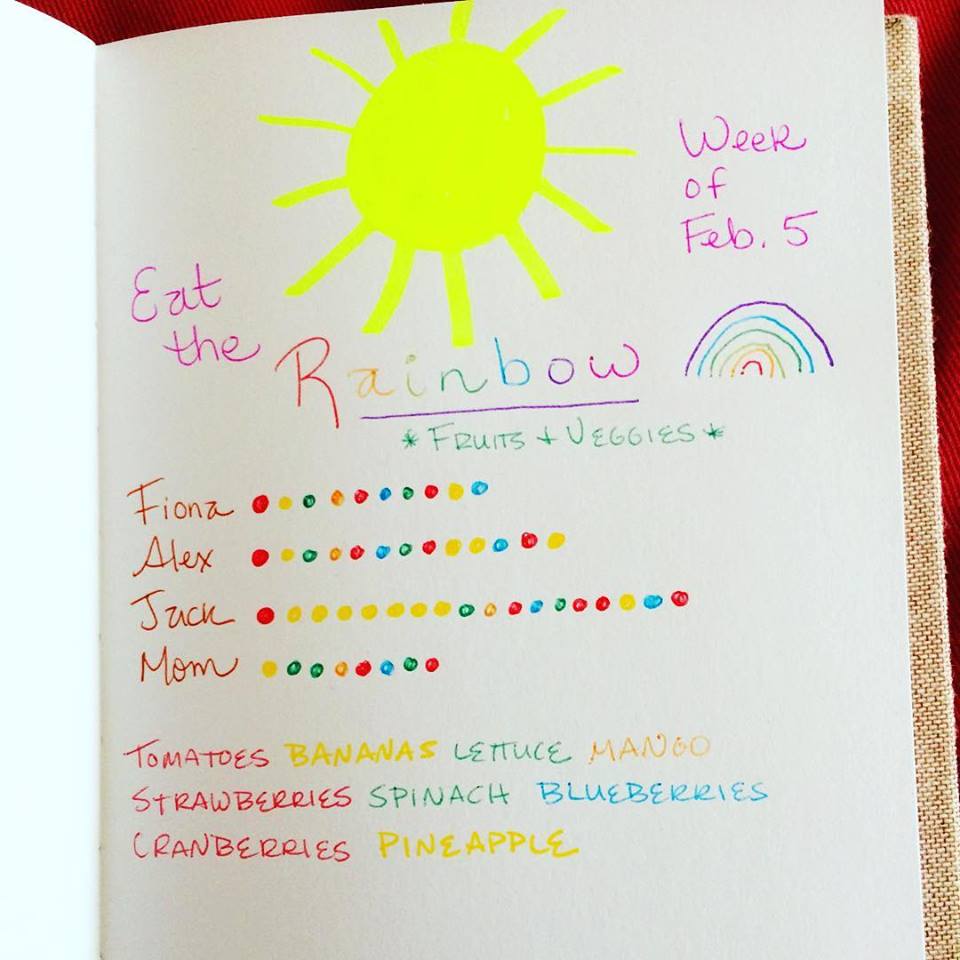 Week
of
Feb. 5
Eat
the
Rainbow
*FRUITS + VEGGIES*
Fiona
Alex
Jack
Mom
TOMATOES BANANAS LETTUCE MANGO
STRAWBERRIES SPINACH BLUEBERRIES
CRANBERRIES PINEAPPLE